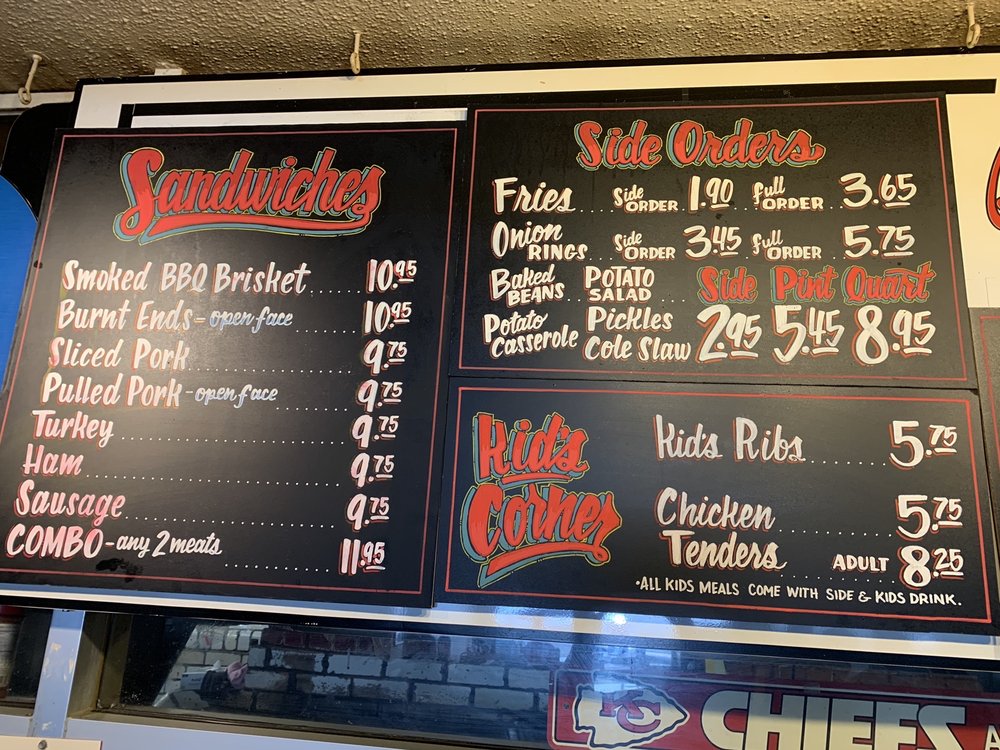 Sandwiches
Smoked BBQ Brisket 10.95
Burnt Ends - open face 10.95
Sliced Pork 9.75
Pulled Pork - open face 9.75
Turkey 9.75
Ham 9.75
Sausage 9.75
COMBO - any 2 meats 11.95
Side Orders
Fries Side ORDER 1.90 full ORDER 3.65
Onion RINGS Side ORDER 3.45 full ORDER 5.75
Baked BEANS POTATO SALAD Side Pint Quart
Potato Casserole Pickles Cole Slaw 2.95 5.45 8.95
Kid's Corner
Kid's Ribs 5.75
Chicken Tenders 5.75
ADULT 8.25
•ALL KIDS MEALS COME WITH SIDE & KIDS DRINK.
KC CHIEFS